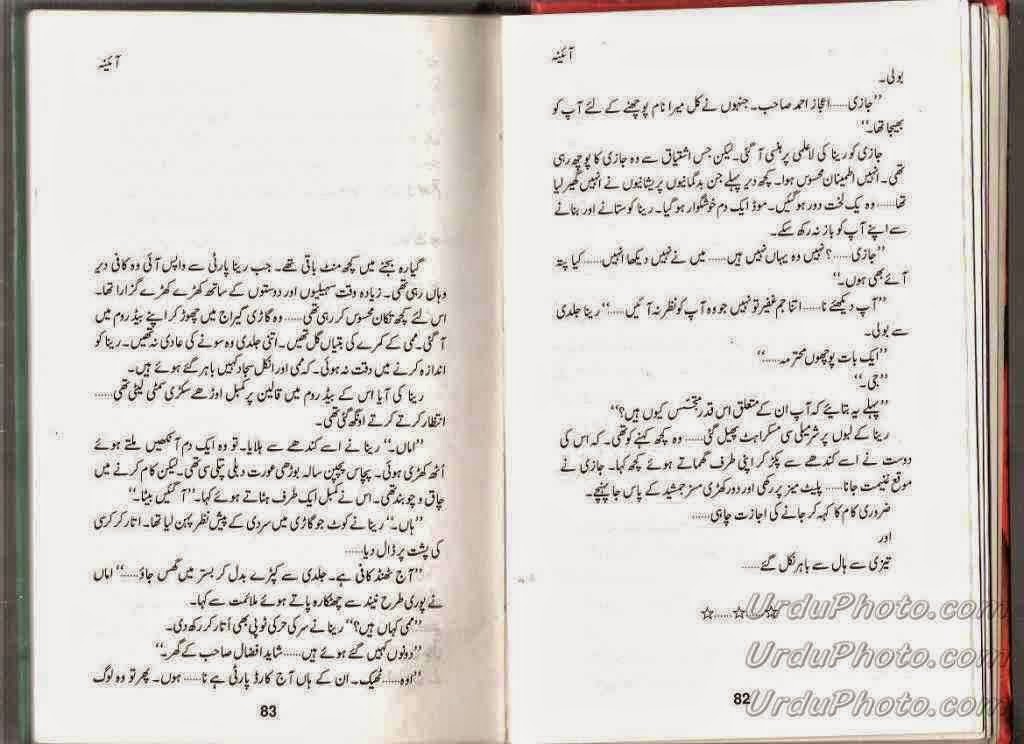 آئینہ
بولی۔
”جازی......اعجاز احمد صاحب۔ جنہوں نے کل میرا نام پوچھنے کے لئے آپ کو
بھیجا تھا۔“
جازی کو رینا کی لاعلمی پر ہنسی آ گئی۔ لیکن جس اشتیاق سے وہ جازی کا پوچھ رہی
تھی۔ انہیں اطمینان محسوس ہوا۔ کچھ دیر پہلے جن بدگمانیوں پریشانیوں نے انہیں گھیر لیا
تھا......وہ یک لخت دور ہو گئیں۔ موڈ ایک دم خوشگوار ہو گیا۔ رینا کو ستانے اور بنانے
سے اپنے آپ کو باز نہ رکھ سکے۔
”جازی......؟ نہیں وہ یہاں نہیں ہیں......میں نے نہیں دیکھا انہیں......کیا پتہ
آئے بھی ہوں۔“
”آپ دیکھئے نا......اتنا جم غفیر تو نہیں جو وہ آپ کو نظر نہ آئیں......“ رینا جلدی
سے بولی۔
”ایک بات پوچھوں محترمہ......“
”جی۔“
”پہلے یہ بتائیے کہ آپ ان کے متعلق اس قدر متجسّس کیوں ہیں؟“
رینا کے لبوں پر شرمیلی سی مسکراہٹ پھیل گئی......وہ کچھ کہنے کو تھی۔ کہ اس کی
دوست نے اسے کندھے سے پکڑ کر اپنی طرف گھماتے ہوئے کچھ کہا۔ جازی نے
موقع غنیمت جانا......پلیٹ میز پر رکھی اور دور کھڑی مسز جمشید کے پاس جا پہنچے۔
ضروری کام کا کہہ کر جانے کی اجازت چاہی......
اور
تیزی سے ہال سے باہر نکل گئے......
☆......☆......☆
82
آئینہ
گیارہ بجنے میں کچھ منٹ باقی تھے۔ جب رینا پارٹی سے واپس آئی وہ کافی دیر
وہاں رہی تھی۔ زیادہ وقت سہیلیوں اور دوستوں کے ساتھ کھڑے کھڑے گزارا تھا۔
اس لئے کچھ تکان محسوس کر رہی تھی......وہ گاڑی گیراج میں چھوڑ کر اپنے بیڈ روم میں
آ گئی۔ ممی کے کمرے کی بتیاں گل تھیں۔ اتنی جلدی وہ سونے کی عادی نہ تھیں۔ رینا کو
اندازہ کرنے میں دقت نہ ہوئی۔ کہ ممی اور انکل سجاد کہیں باہر گئے ہوئے ہیں۔
رینا کی آیا اس کے بیڈ روم میں قالین پر کمبل اوڑھے سکڑی سمٹی لیٹی تھی......
انتظار کرتے کرتے اونگھ گئی تھی۔
”اماں۔“ رینا نے اسے کندھے سے ہلایا۔ تو وہ ایک دم آنکھیں ملتے ہوئے
اُٹھ کھڑی ہوئی۔ پچاس پچپن سالہ بوڑھی عورت دبلی پتلی سی تھی۔ لیکن کام کرنے میں
چاق و چوبند تھی۔ اس نے کمبل ایک طرف ہٹاتے ہوئے کہا۔ ”آ گئیں بیٹا۔“
”ہاں۔“ رینا نے کوٹ جو گاڑی میں سردی کے پیش نظر پہن لیا تھا۔ اتار کر کرسی
کی پشت پر ڈال دیا......
”آج ٹھنڈ کافی ہے۔ جلدی سے کپڑے بدل کر بستر میں گھس جاؤ......“ اماں
نے پوری طرح نیند سے چھٹکارہ پاتے ہوئے ملائمت سے کہا۔
”ممی کہاں ہیں؟“ رینا نے سر کی ٹوپی بھی اُتار کر رکھ دی۔
”دونوں کہیں گئے ہوئے ہیں......شاید افضال صاحب کے گھر۔“
”اوہ......ٹھیک۔ ان کے ہاں آج کارڈ پارٹی ہے نا......ہوں۔ پھر تو وہ لوگ
83
UrduPhoto.com
UrduPhoto.com
UrduPhoto.com